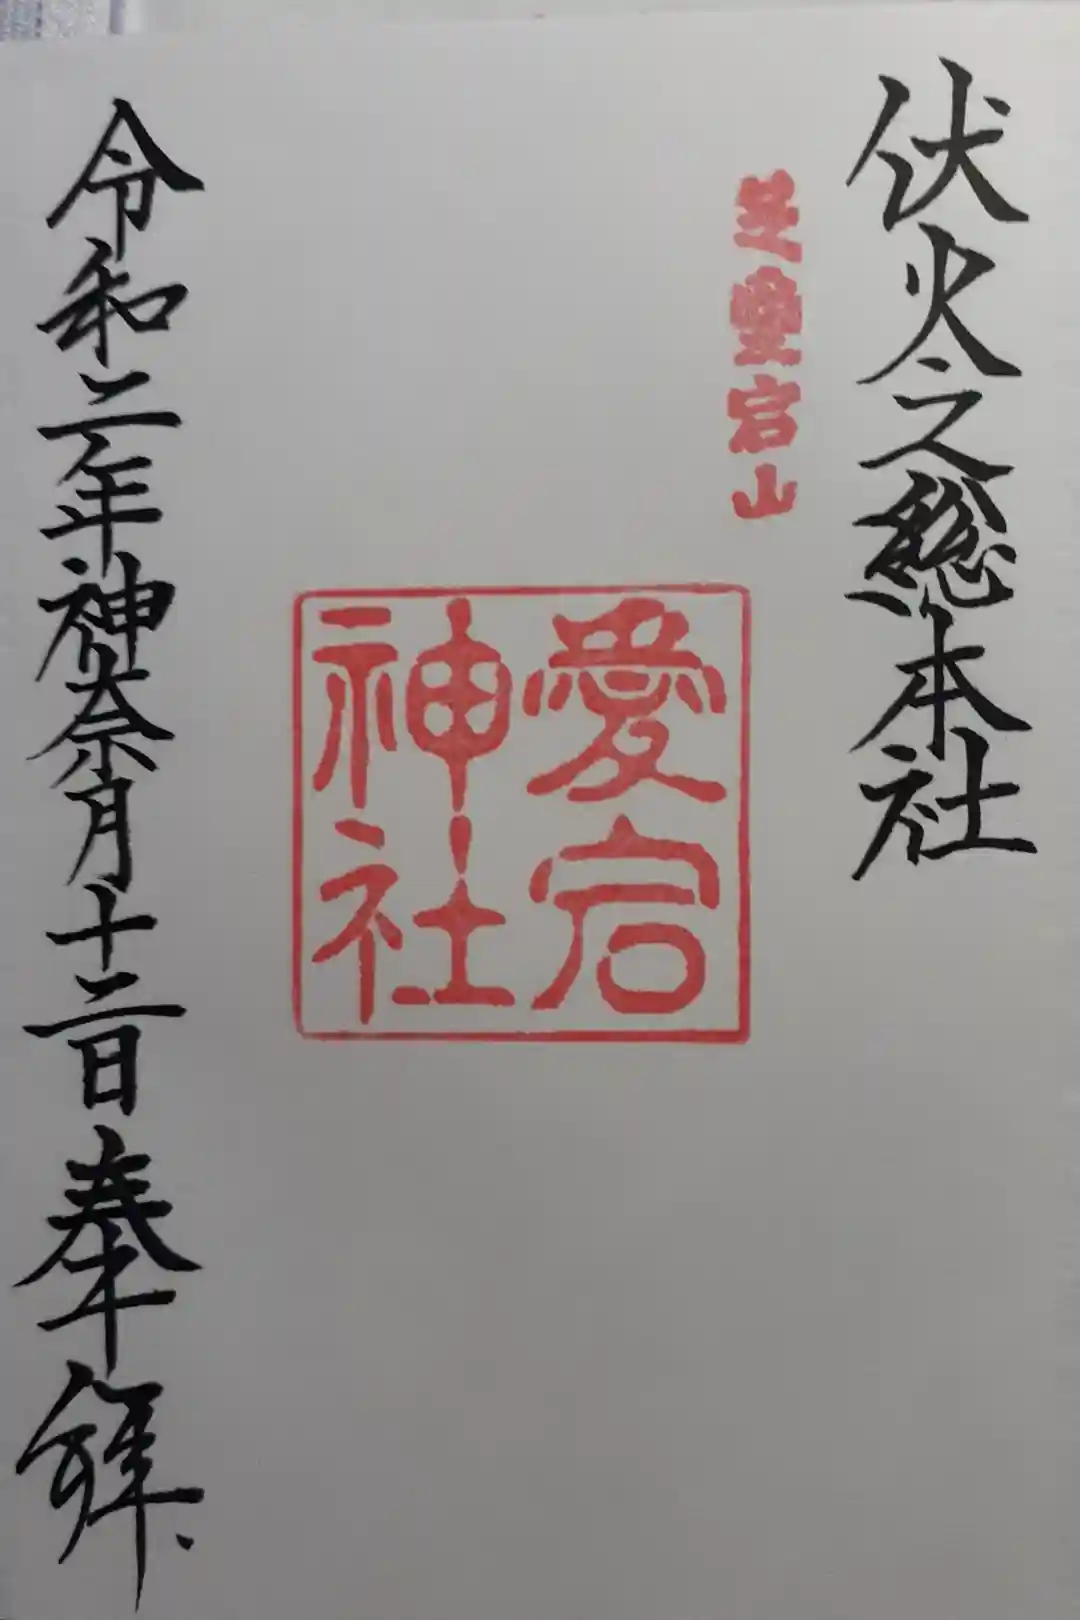 伏火之総本社
芝愛宕山
愛宕
神社
令和二年神奈月十二日奉拝